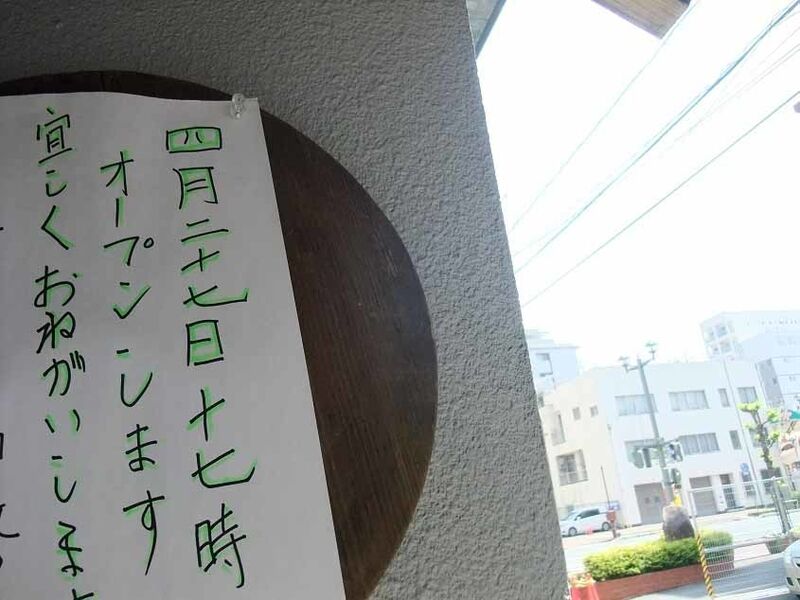 四月二十七日十七時
オープンします
宜しくおねがいします